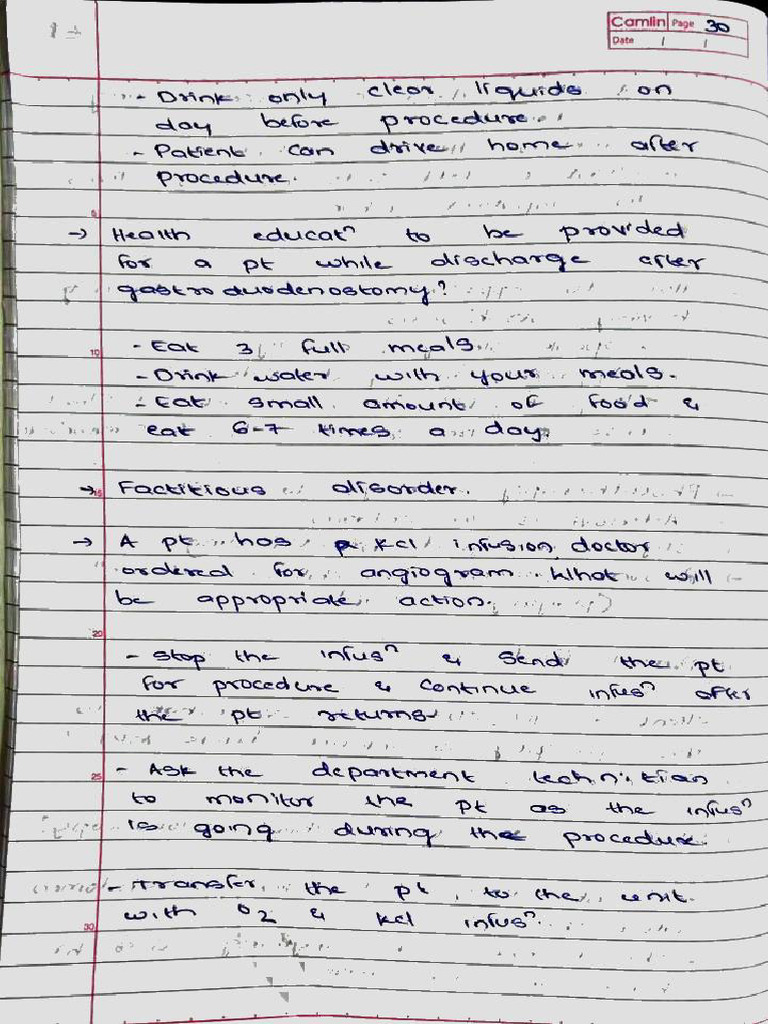 Camlin Page 30
Date / /
- Drink only clear liquids on
day before procedure.
- Patient can drive home after
procedure.
→ Health educatⁿ to be provided
for a pt while discharge after
gastroduodenostomy?
10
- Eat 3 full meals.
- Drink water with your meals.
- Eat small amount of food &
eat 6-7 times a day.
→ Factitious disorder.
15
→ A pt has kcl infusion doctor
ordered for angiogram. What will
be appropriate action.
20
- Stop the infusⁿ & send the pt
for procedure & continue infusⁿ after
the pt returns.
25
- Ask the department technitian
to monitor the pt as the infusⁿ
is going during the procedure.
- Transfer the pt to the unit
with O2 & kcl infusⁿ.
30